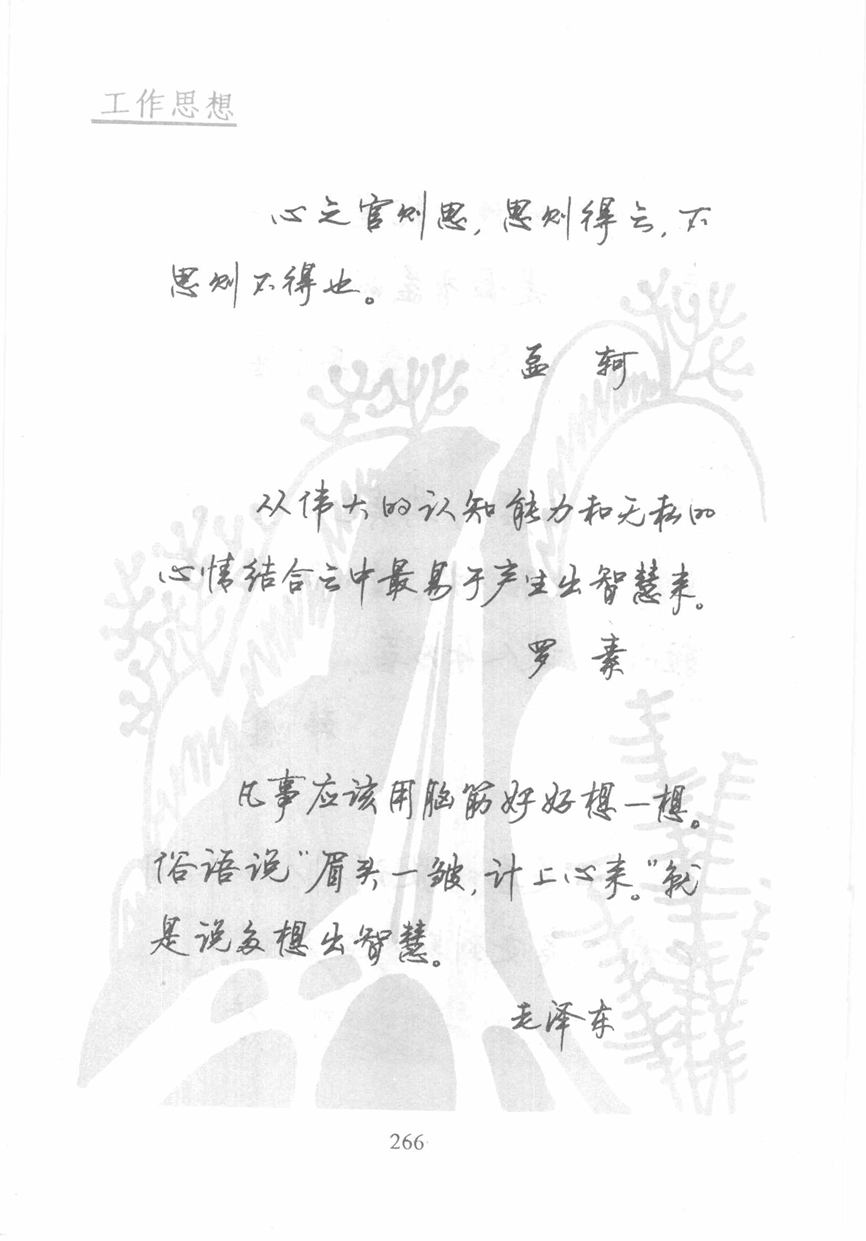 工作思想
心之官则思,思则得之,不
思则不得也。
孟 轲
从伟大的认知能力和无私的
心情结合之中最易于产生出智慧来。
罗 素
凡事应该用脑筋好好想一想。
俗语说"眉头一皱,计上心来。"就
是说多想出智慧。
毛泽东
266